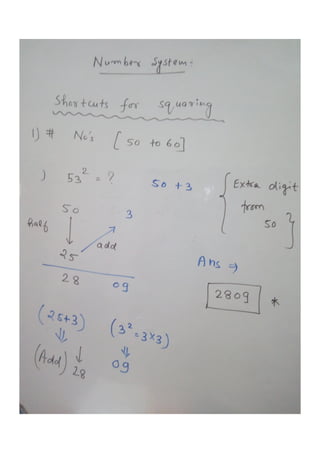 Number System:
Shortcuts for squaring
1) # No's [ 50 to 60]
) 53² = ? 50 + 3 { Extra digit from 50 }
50 3
half add
25
28 09
Ans ⇒
2809 *
(25+3) (3² = 3×3)
(Add) ↓ 28 09